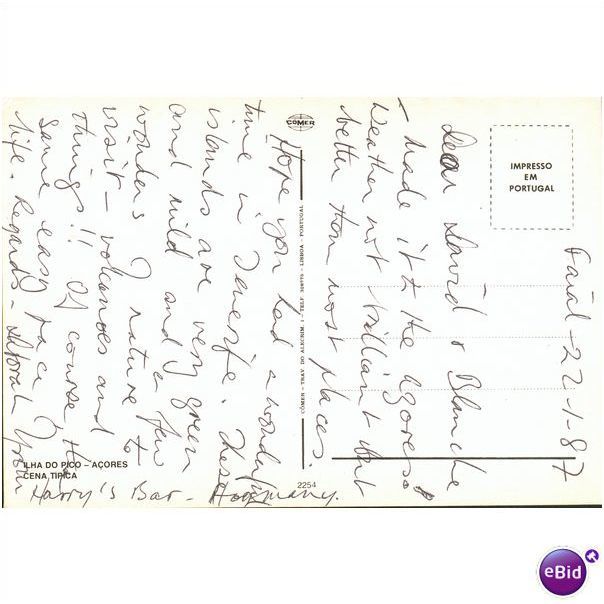 Faial - 22-1-87
Dear David & Blanche
I made it to the Azores &
Weather not brilliant but
better than most places.
Hope you had a wonderful
time in Tenerife. These
islands are very green
and wild and a few
wonders of nature to
visit - volcanoes and
things!! Of course the
same easy pace of
life. Regards - from
Harry's Bar - Hogmany.
COMER
IMPRESSO
EM
PORTUGAL
COMER - TRAV. DO ALECRIM, 1 - TELF. - LISBOA - PORTUGAL
ILHA DO PICO - AÇORES
CENA TIPICA
2254
eBid